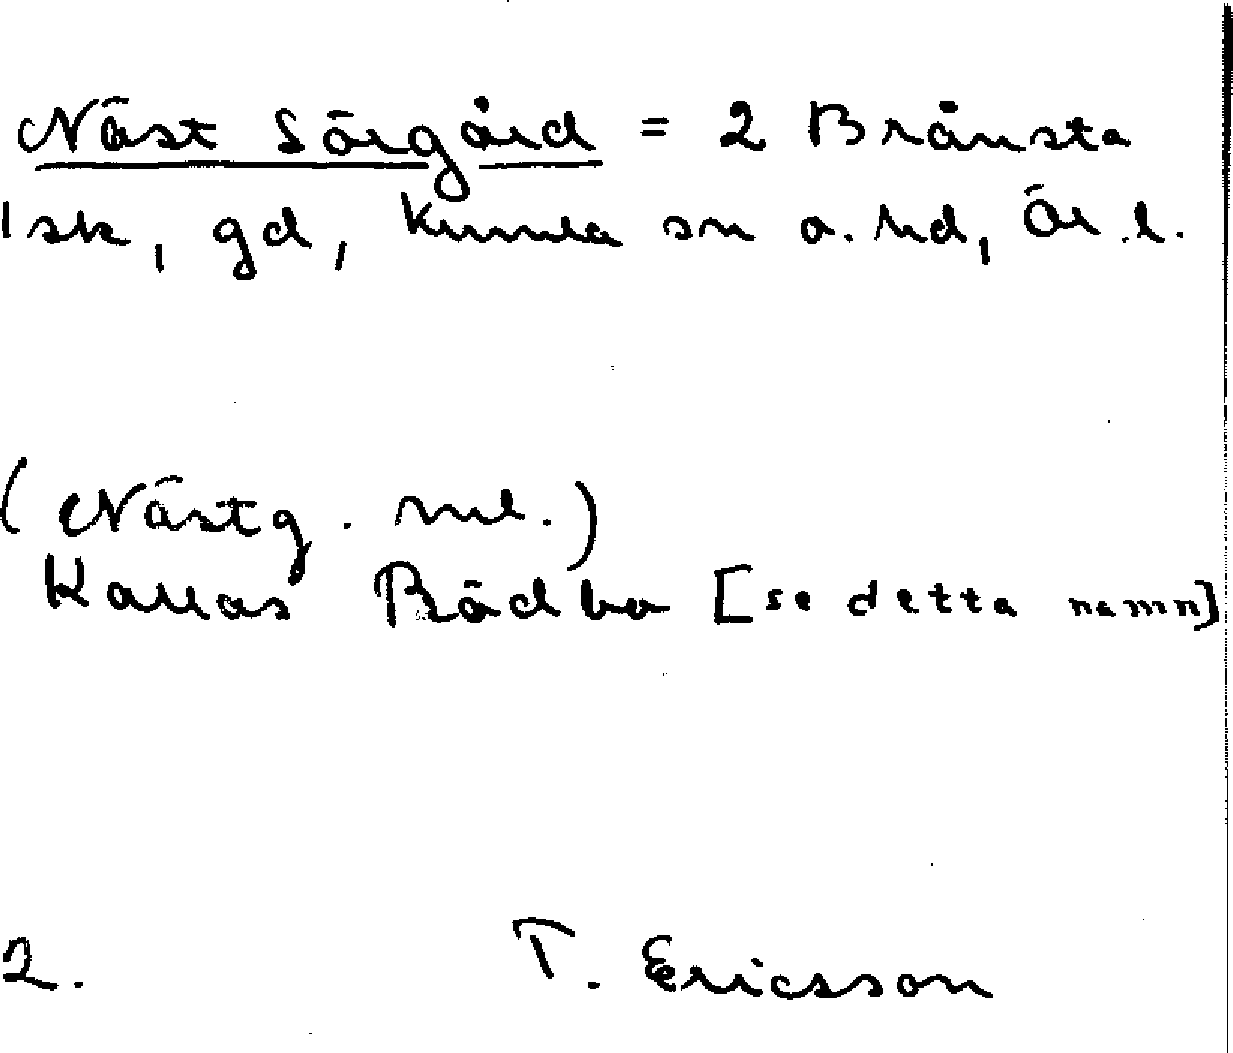 Näst Sörgård = 2 Brånsta
1 sk, gd, Kumla sn o. hd, Ör.l.
(Nästg. ml.)
Kallas Rödbo [se detta namn]
2. T. Ericsson